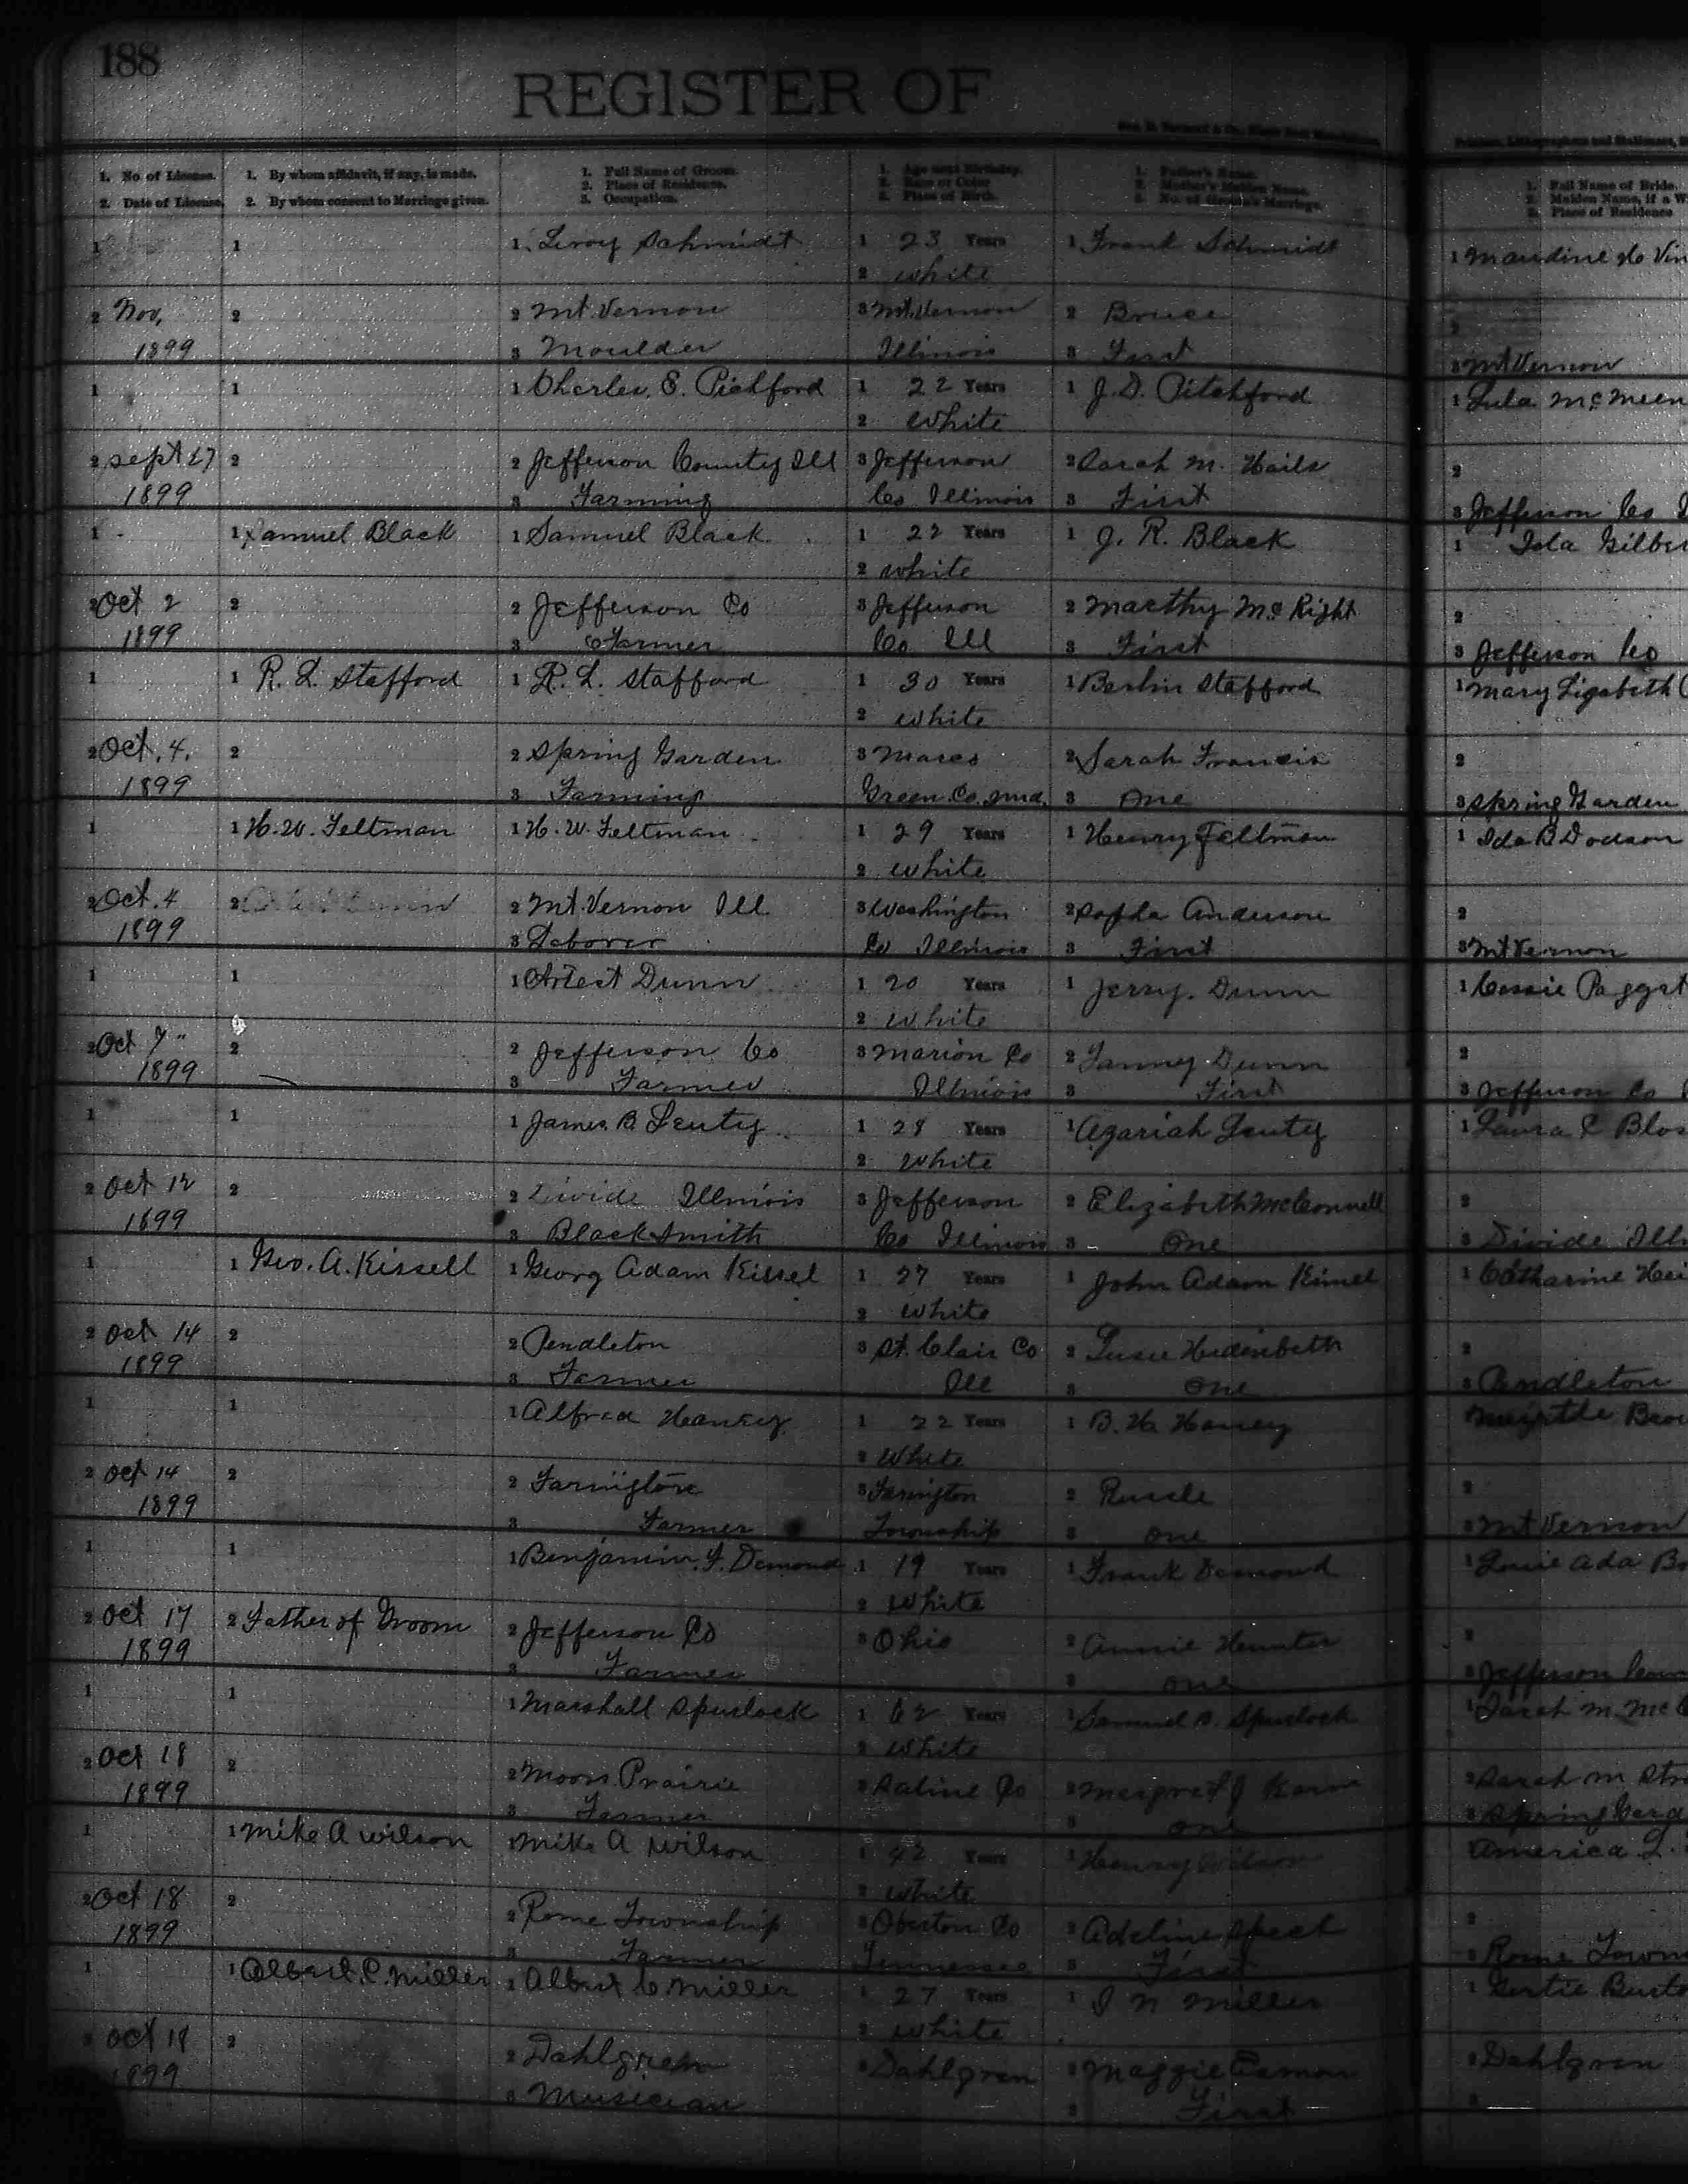 188
REGISTER OF
1. No of License. 1. By whom affidavit, if any, is made. 1. Full Name of Groom. 1. Age next Birthday. 1. Father's Name. 1. Full Name of Bride.
2. Place of Residence. 2. Race or Color 2. Mother's Maiden Name. 2. Maiden Name, if a W
2. Date of License. 2. By whom consent to Marriage given. 3. Occupation. 3. Place of Birth. 3. No. of Groom's Marriage. 3. Place of Residence
1 1 1. Leroy Schmidt 1 23 Years 1 Frank Schmidt 1 Maudine
2 white
2 Nov, 2 2 Mt. Vernon 3 Mt. Vernon 2 Bruce 2
1899 3 Moulder Illinois 3 First 3 Mt Vernon
1 1 1 Charles. S. Pichford 1 22 Years 1 J. D. Pitchford 1 Lula McMeen
2 White
2 Sept 27 2 2 Jefferson County Ill 3 Jefferson 2 Sarah M. Hails 2
1899 3 Farming Co Illinois 3 First 3 Jefferson Co
1 1 Samuel Black 1 Samuel Black 1 22 Years 1 J. R. Black 1 Ida Gilber
2 white
2 Oct 2 2 2 Jefferson Co 3 Jefferson 2 Maethy McRight 2
1899 3 Farmer Co Ill 3 First 3 Jefferson Co
1 1 R. L. Stafford 1 R. L. Stafford 1 30 Years 1 Berlin Stafford 1 Mary Ligabeth
2 white
2 Oct. 4. 2 2 Spring Garden 3 Mares 2 Sarah Francis 2
1899 3 Farming Green Co. 3 One 3 Spring Garden
1 1 H. W. Feltman 1 H. W. Feltman 1 29 Years 1 Henry Feltman 1 Ida B Dodson
2 white
2 Oct. 4 2 2 Mt. Vernon Ill 3 Washington 2 Anderson 2
1899 3 Laborer Co Illinois 3 First 3 Mt Vernon
1 1 1 Artest Dunn 1 20 Years 1 Jerry. Dunn 1 Cassie Paggat
2 White
2 Oct 7" 2 2 Jefferson Co 3 Marion Co 2 Fanny Dunn 2
1899 3 Farmer Illinois 3 First 3 Jefferson Co
1 1 1 James B. Lenty 1 28 Years 1 Azariah Lenty 1 Laura E Blos
2 White
2 Oct 12 2 2 Divide Illinois 3 Jefferson 2 Elizabeth McConnell 2
1899 3 Blacksmith Co Illinois 3 One 3 Divide Illi
1 1 Geo. A. Kissell 1 Georg Adam Kissel 1 27 Years 1 John Adam Kissel 1 Catharine Hei
2 white
2 Oct 14 2 2 Pendleton 3 St. Clair Co 2 Susie Hedenbeth 2
1899 3 Farmer Ill 3 One 3 Pendleton
1 1 1 Alfred Haney 1 22 Years 1 B. H. Haney 1 Myrtle Brow
2 White
2 Oct 14 2 2 Farrington 3 Farington 2 Russle 2
1899 3 Farmer Township 3 One 3 Mt Vernon
1 1 1 Benjamin. F. Demond 1 19 Years 1 Frank Demond 1 Louie Ada
2 White
2 Oct 17 2 Father of Groom 2 Jefferson Co 3 Ohio 2 Annie Hunter 2
1899 3 Farmer 3 One 3 Jefferson Coun
1 1 1 Marshall Spurlock 1 62 Years 1 Samuel B. Spurlock 1 Sarah M. Mc
2 White
2 Oct 18 2 2 Moors Prairie 3 Saline Co 2 2 Sarah M Stre
1899 3 Farmer 3 One 3 Spring Gard
1 1 Mike A Wilson 1 Mike A Wilson 1 42 Years 1 Henry Wilson America L.
2 White
2 Oct 18 2 2 Rome Township 3 Oberton Co 2 Adeline Speck 2
1899 3 Farmer Tennessee 3 First 3 Rome Town
1 1 Albert. C. Miller 1 Albert C. Miller 1 27 Years 1 J N Miller 1 Gertie Burto
2 White
2 Oct 18 2 2 Dahlgren 3 Dahlgren 2 Maggie 2 Dahlgren
1899 3 Musician 3 First 3